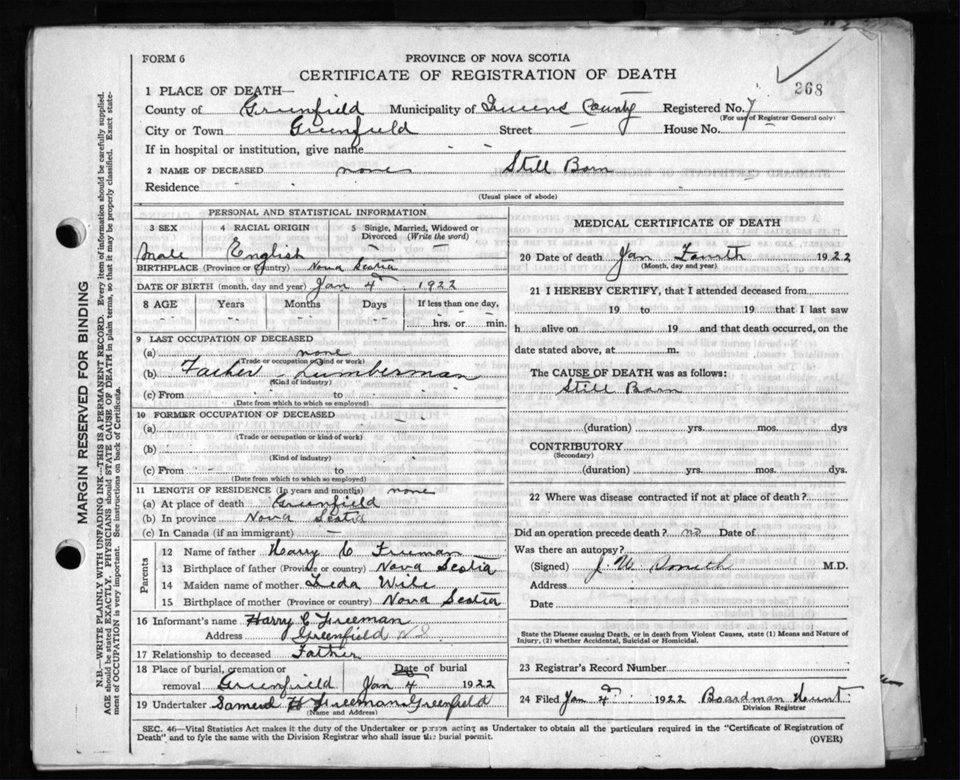 FORM 6
PROVINCE OF NOVA SCOTIA
CERTIFICATE OF REGISTRATION OF DEATH
368
1 PLACE OF DEATH—
County of Greenfield Municipality of Queens County Registered No. 7
(For use of Registrar General only)
City or Town Greenfield Street — House No. —
If in hospital or institution, give name - -
2 NAME OF DECEASED none Still Born
Residence - - -
(Usual place of abode)
PERSONAL AND STATISTICAL INFORMATION
3 SEX 4 RACIAL ORIGIN 5 Single, Married, Widowed or Divorced (Write the word)
Male English - - -
BIRTHPLACE (Province or Country) Nova Scotia
DATE OF BIRTH (month, day and year) Jan 4th 1922
8 AGE Years Months Days If less than one day,
hrs. or min.
9 LAST OCCUPATION OF DECEASED
(a) none
(Trade or occupation or kind of work)
(b) Father Lumberman
(Kind of industry)
(c) From - to
(Date from which to which so employed)
10 FORMER OCCUPATION OF DECEASED
(a) - -
(Trade or occupation or kind of work)
(b)
(Kind of industry)
(c) From - to
(Date from which to which so employed)
11 LENGTH OF RESIDENCE (In years and months) none
(a) At place of death Greenfield
(b) In province Nova Scotia
(c) In Canada (if an immigrant) —
Parents
12 Name of father Harry C Freeman
13 Birthplace of father (Province or country) Nova Scotia
14 Maiden name of mother Leda Wile
15 Birthplace of mother (Province or country) Nova Scotia
16 Informant's name Harry C Freeman
Address Greenfield N.S
17 Relationship to deceased Father
18 Place of burial, cremation or removal Greenfield Date of burial Jan 4 1922
19 Undertaker Samuel H Freeman Greenfield
(Name and Address)
MEDICAL CERTIFICATE OF DEATH
20 Date of death Jan Fourth 1922
(Month, day and year)
21 I HEREBY CERTIFY, that I attended deceased from
19 to 19 that I last saw
h alive on 19 and that death occurred, on the
date stated above, at m.
The CAUSE OF DEATH was as follows:
Still Born
(duration) yrs. mos. dys
CONTRIBUTORY
(Secondary)
(duration) yrs. mos. dys.
22 Where was disease contracted if not at place of death?
Did an operation precede death? no Date of
Was there an autopsy?
(Signed) J W Smith M.D.
Address
Date
State the Disease causing Death, or in death from Violent Causes, state (1) Means and Nature of
Injury, (2) whether Accidental, Suicidal or Homicidal.
23 Registrar's Record Number
24 Filed Jan 4th 1922 Boardman Hunt
Division Registrar
SEC. 46—Vital Statistics Act makes it the duty of the Undertaker or person acting as Undertaker to obtain all the particulars required in the "Certificate of Registration of
Death" and to fyle the same with the Division Registrar who shall issue the burial permit.
(OVER)
MARGIN RESERVED FOR BINDING
N.B.—WRITE PLAINLY WITH UNFADING INK—THIS IS A PERMANENT RECORD. Every item of information should be carefully supplied.
AGE should be stated EXACTLY. PHYSICIANS should STATE CAUSE OF DEATH in plain terms, so that it may be properly classified. Exact state-
ment of OCCUPATION is very important. See instructions on back of Certificate.